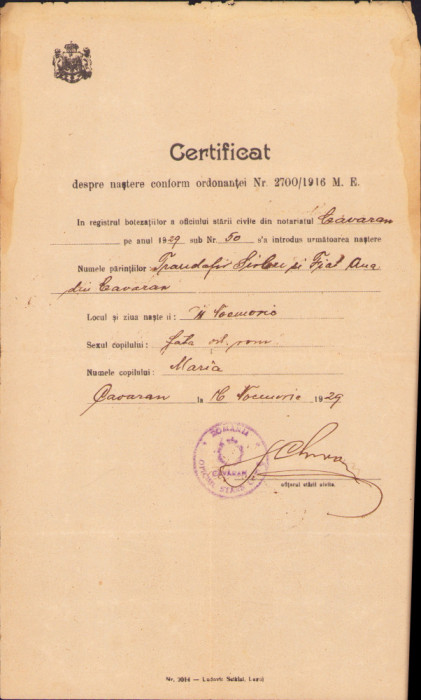 Certificat
despre naștere conform ordonanței Nr. 2700/1916 M. E.
In registrul botezaților a oficiului stării civile din notariatul Cavaran
pe anul 1929 sub Nr. 50 s'a introdus următoarea naștere
Numele părinților Trandafir și Ana
din Cavaran
Locul și ziua nașterii: Noemvrie
Sexul copilului: fata ort. rom.
Numele copilului: Maria
Cavaran la 16 Noemvrie 1929
ROMANIA
CAVARAN
OFICIUL STĂRII CIVILE
ofițerul stării civile.
Nr. 2094 — Ludovic Sziklai, Lugoj